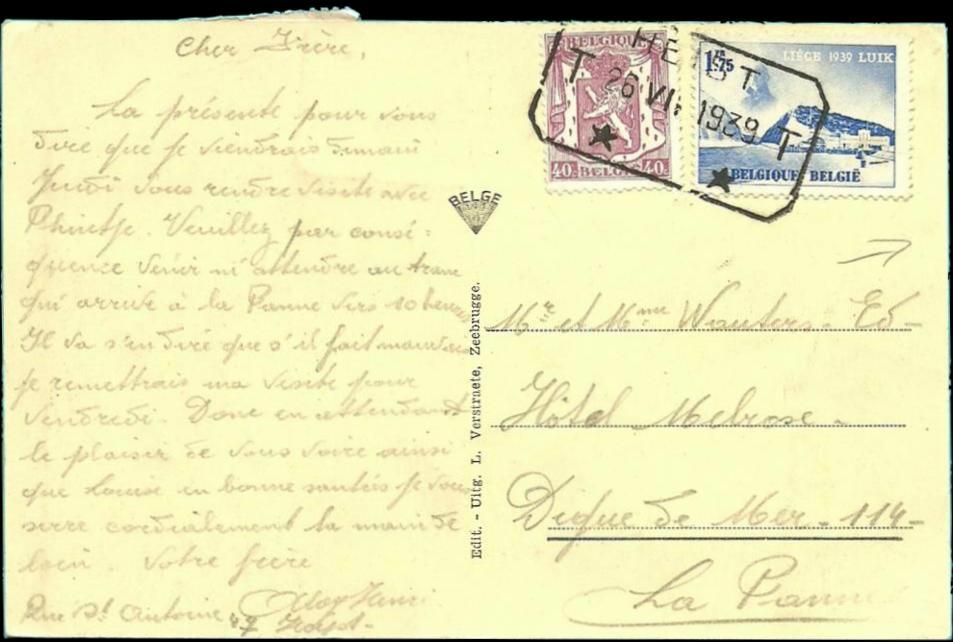 Cher Frère,
La présente pour vous
dire que je viendrais demain
Jeudi vous rendre visite avec
Phinetje. Veuillez par consé=
quence venir m'attendre au tram
qui arrive à la Panne vers 10 heures
Il va s'en dire que s'il fait mauvais
je remettrais ma visite pour
Vendredi. Donc en attendant
le plaisir de vous voire ainsi
que Louise en bonne santées je vous
serre cordialement la main de
loin. Votre frère
Henri
Rue St Antoine 47
Heyst-
BELGE
Edit. - Uitg. L. Verstraete, Zeebrugge.
BELGIQUE
40c BELGIË 40c
1F75
LIÉGE 1939 LUIK
BELGIQUE BELGIË
HEIST
T 26 VII 1939 T
Mr et Mme Wauters. Ed-
Hôtel Melrose-
Digue de Mer-114-
La Panne